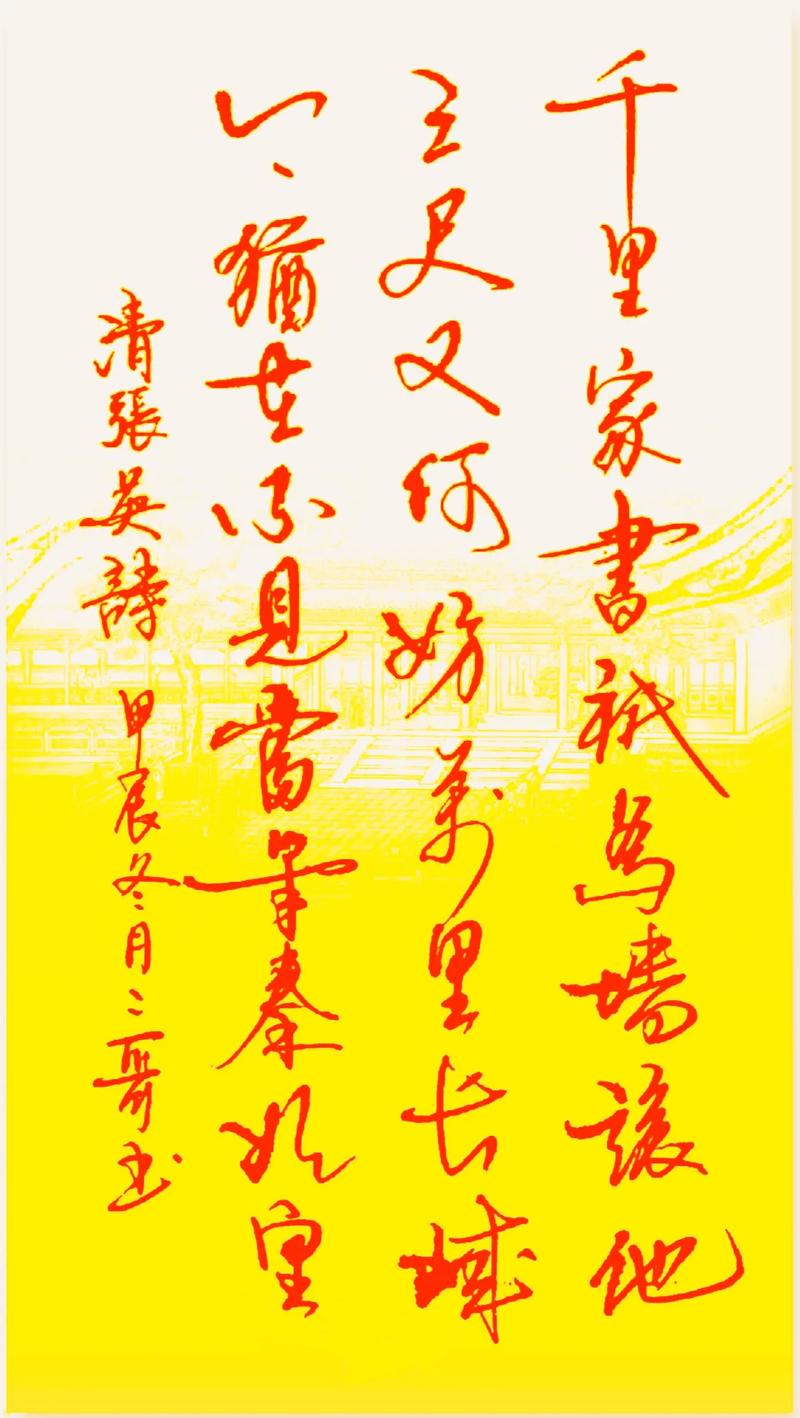 千里家書祇為墻讓他
三尺又何妨萬里长城
今猶在不見當年秦始皇
清張英詩 甲辰冬月二哥书